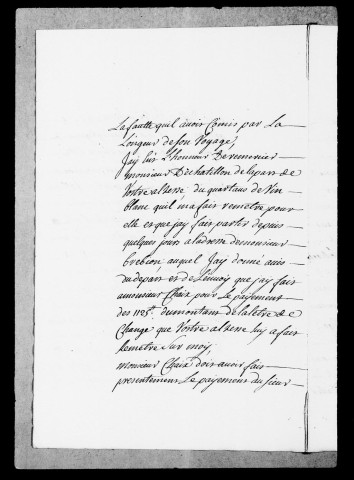 La fautte quil auoit Comis par La
Longeur de son Voyage,
Jay Eu Lhonneur De remercier
monsieur Dechatillon de la part de
Vostre altesse du quartaus de Vin
blanc quil ma fait remetre pour
elle et que jay fait partir depuis
quelques jours a ladresse de monsieur
Brebion auquel Jay donné auis
du depart et de Lenuoy que jay fait
a monsieur Chaix pour Le payement
des 1125# du montant de la letre de
Change que Vostre altesse luy a fait
Remetre Sur moy,
monsieur Chaix doit auoir fait
presentement Le payement au sieur